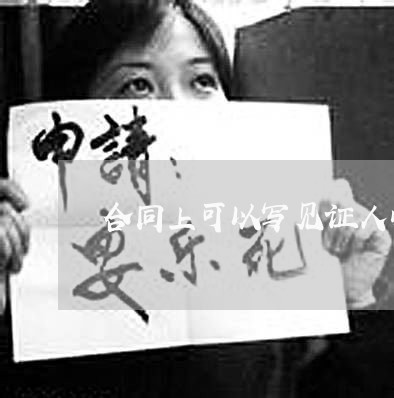 申請:
合同上可以写见证人
安乐死